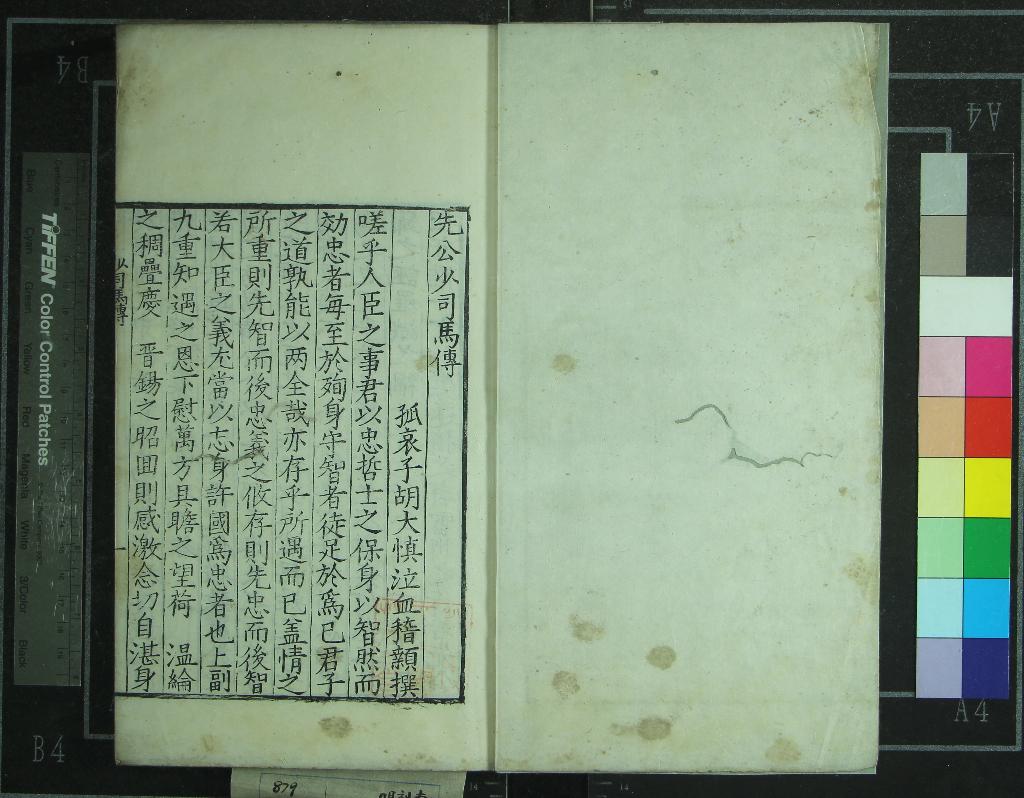 先公少司馬傳
孤哀子胡大慎泣血稽顙撰
嗟乎人臣之事君以忠哲士之保身以智然而
効忠者每至於殉身守智者徒足於爲已君子
之道孰能以两全哉亦存乎所遇而已盖情之
所重則先智而後忠義之攸存則先忠而後智
若大臣之義尤當以忘身許國爲忠者也上副
九重知遇之恩下慰萬方具瞻之望荷 温綸
之稠疊慶 晋錫之昭囬則感激念切自湛身
少司馬傳
一
B4
A4
A4
B4
TIFFEN Color Control Patches
Blue
Cyan
Green
Yellow
Red
Magenta
White
3/Color
Black
879